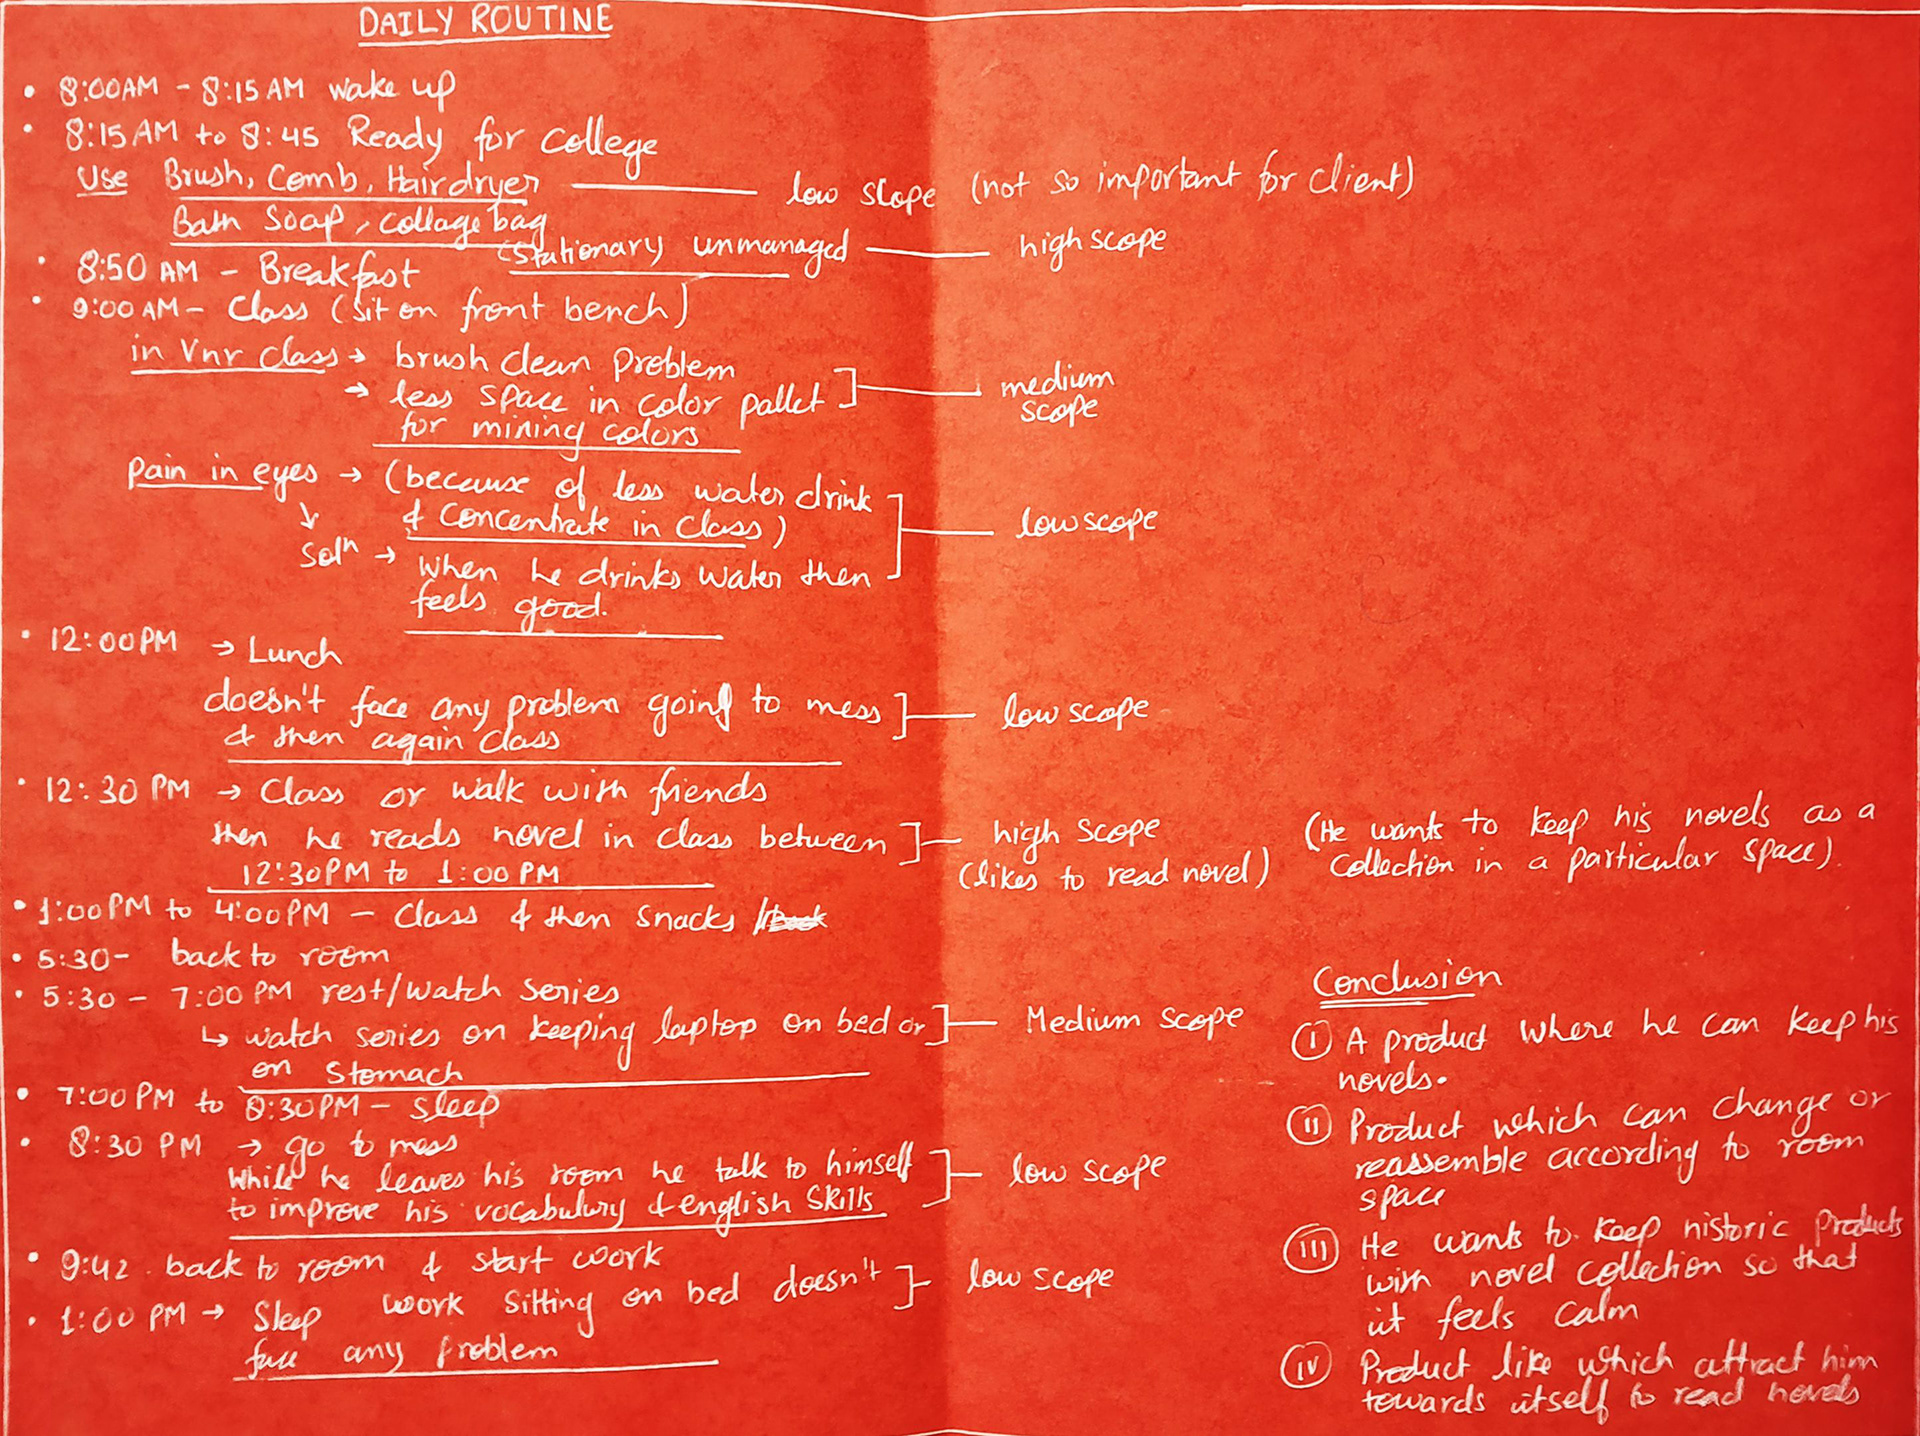 DAILY ROUTINE
• 8:00AM - 8:15AM wake up
• 8:15AM to 8:45 Ready for College
Use Brush, Comb, Hairdryer — low slope (not so important for client)
Bath Soap, collage bag
(Stationary unmanaged — high scope
• 8:50 AM - Breakfast
• 9:00AM - Class (sit on front bench)
in Vnr class → brush clean Problem
→ less space in color pallet — medium scope
for mixing colors
Pain in eyes → (because of less water drink
& concentrate in class) — low scope
Solⁿ → when he drinks water then
feels good.
• 12:00PM → Lunch
doesn't face any problem going to mess — low scope
& then again class
• 12:30 PM → Class or walk with friends
then he reads novel in class between — high scope (He wants to keep his novels as a
12:30PM to 1:00PM (likes to read novel) collection in a particular space).
• 1:00PM to 4:00PM - Class & then snacks /
• 5:30- back to room
• 5:30 - 7:00PM rest/watch series
↳ watch series on keeping laptop on bed or — Medium scope
on stomach
• 7:00PM to 8:30PM - sleep
• 8:30 PM → go to mess
While he leaves his room he talk to himself — low scope
to improve his vocabulury & english skills
• 9:42 - back to room & start work
work sitting on bed doesn't — low scope
• 1:00 PM → Sleep
face any problem
Conclusion
(I) A product where he can keep his
novels.
(II) Product which can change or
reassemble according to room
space
(III) He wants to keep historic products
with novel collection so that
it feels calm
(IV) Product like which attract him
towards itself to read novels